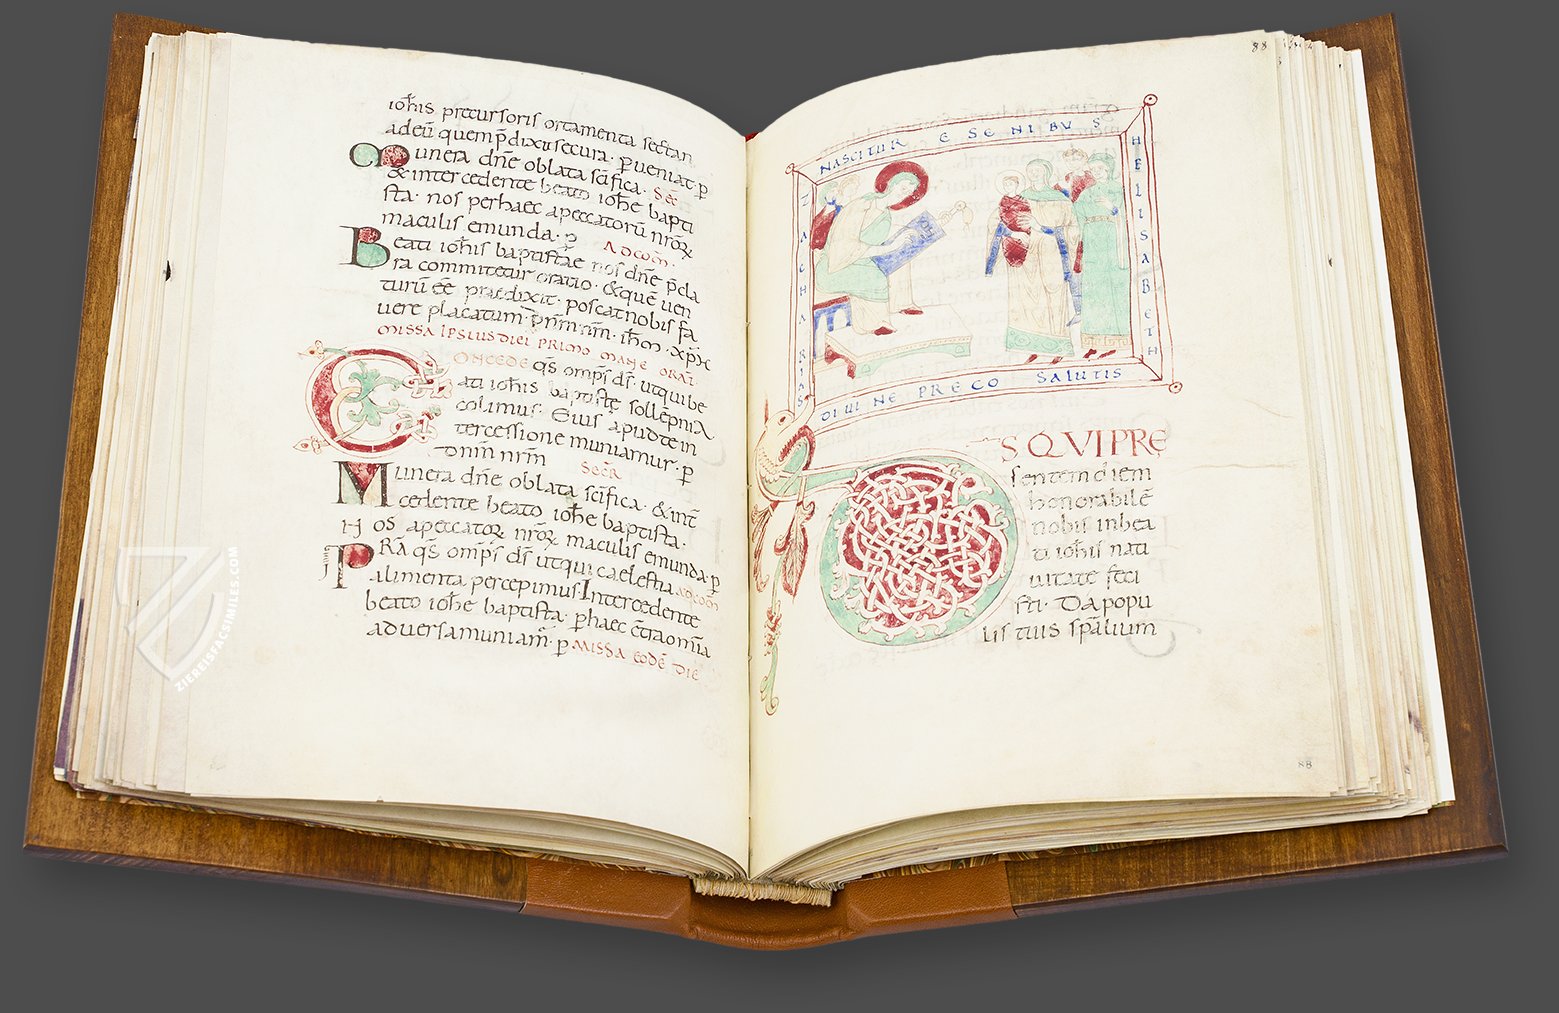 ioħis precursoris ortamenta sectan
adeū quem p̄dixit secura · ꝑveniat · ꝑ
Munera dn̄e oblata sc̄ifica · Sec̄
& intercedente beato ioħe bapti
sta · nos perhaec apeccatorū nr̄oꝝ
maculis emunda · Adcom̄
Beati ioħis baptistae nos dn̄e p̄cla
ra commitetur oratio · & quē ven
turū ēē praedixit · poscat nobis fa
vere placatum · dn̄m nr̄m · iħm · xp̄m
missa ipsius diei primo mane orat
Concede qs̄ omp̄s dr̄ · ut qui be
ati ioħis baptistę sollēpnia
colimus · Eius apud te in
tercessione muniamur · ꝑ
dn̄m nr̄m Secr̄
Munera dn̄e oblata sc̄ifica · & int̄
cedente beato ioħe baptista ·
Nos apeccatoꝝ nr̄oꝝ maculis emunda · ꝑ
Pr̄a qs̄ omp̄s dr̄ ut qui caelestia adcom̄
alimenta percepimus Intercedente
beato ioħe baptista · ꝑhaec c̄tra om̄ia
adversa muniam̄ · ꝑ missa eodē die
88
NASCITUR E SENIBUS
ZACHARIAS
HELISABETH
DIVINE PRECO SALUTIS
DS QVI PRE
sentem diem
honorabilē
nobis in bea
ti ioħis nati
vitate feci
sti · Da popu
lis tuis sp̄alium
88
ZIEREISFACSIMILES.COM